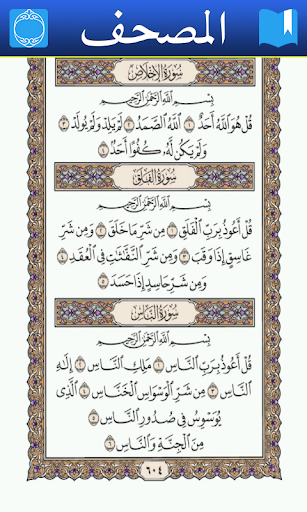 المصحف
سُورَةُ الإِخْلَاصِ
بِسْمِ ٱللَّهِ ٱلرَّحْمَٰنِ ٱلرَّحِيمِ
قُلْ هُوَ ٱللَّهُ أَحَدٌ ١ ٱللَّهُ ٱلصَّمَدُ ٢ لَمْ يَلِدْ وَلَمْ يُولَدْ ٣
وَلَمْ يَكُن لَّهُۥ كُفُوًا أَحَدٌۢ ٤
سُورَةُ الفَلَقِ
بِسْمِ ٱللَّهِ ٱلرَّحْمَٰنِ ٱلرَّحِيمِ
قُلْ أَعُوذُ بِرَبِّ ٱلْفَلَقِ ١ مِن شَرِّ مَا خَلَقَ ٢ وَمِن شَرِّ
غَاسِقٍ إِذَا وَقَبَ ٣ وَمِن شَرِّ ٱلنَّفَّٰثَٰتِ فِي ٱلْعُقَدِ ٤
وَمِن شَرِّ حَاسِدٍ إِذَا حَسَدَ ٥
سُورَةُ النَّاسِ
بِسْمِ ٱللَّهِ ٱلرَّحْمَٰنِ ٱلرَّحِيمِ
قُلْ أَعُوذُ بِرَبِّ ٱلنَّاسِ ١ مَلِكِ ٱلنَّاسِ ٢ إِلَٰهِ
ٱلنَّاسِ ٣ مِن شَرِّ ٱلْوَسْوَاسِ ٱلْخَنَّاسِ ٤ ٱلَّذِي
يُوَسْوِسُ فِي صُدُورِ ٱلنَّاسِ ٥
مِنَ ٱلْجِنَّةِ وَٱلنَّاسِ ٦
٦٠٤